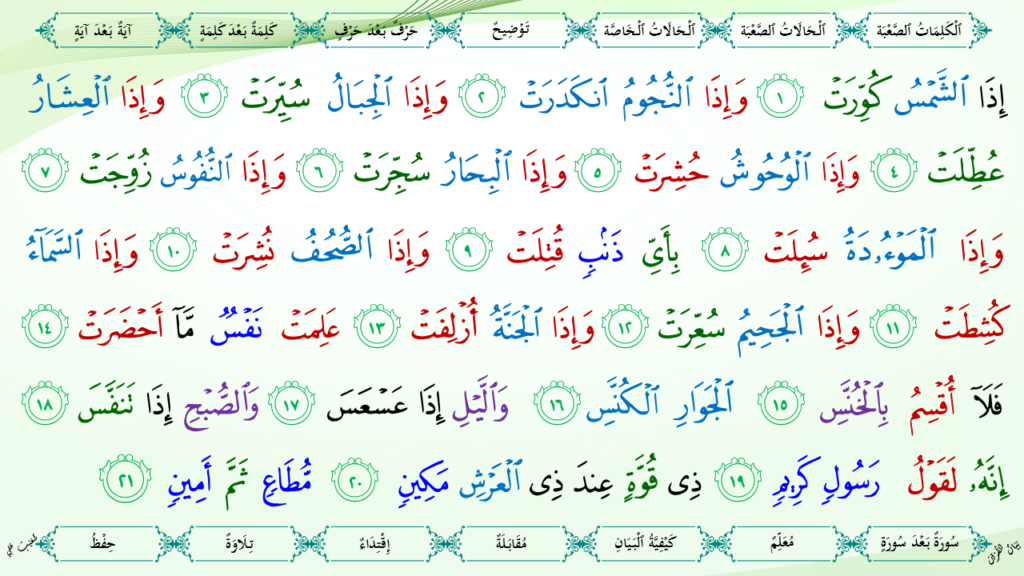 اَلْكَلِمَاتُ الصَّعْبَة اَلْحَالَاتُ الصَّعْبَة اَلْحَالَاتُ الْخَاصَّة تَوْضِيحٌ حَرْفٌ بَعْدَ حَرْفٍ كَلِمَةٌ بَعْدَ كَلِمَةٍ آيَةٌ بَعْدَ آيَةٍ
إِذَا ٱلشَّمْسُ كُوِّرَتْ ١ وَإِذَا ٱلنُّجُومُ ٱنكَدَرَتْ ٢ وَإِذَا ٱلْجِبَالُ سُيِّرَتْ ٣ وَإِذَا ٱلْعِشَارُ
عُطِّلَتْ ٤ وَإِذَا ٱلْوُحُوشُ حُشِرَتْ ٥ وَإِذَا ٱلْبِحَارُ سُجِّرَتْ ٦ وَإِذَا ٱلنُّفُوسُ زُوِّجَتْ ٧
وَإِذَا ٱلْمَوْءُۥدَةُ سُئِلَتْ ٨ بِأَىِّ ذَنۢبٍ قُتِلَتْ ٩ وَإِذَا ٱلصُّحُفُ نُشِرَتْ ١٠ وَإِذَا ٱلسَّمَآءُ
كُشِطَتْ ١١ وَإِذَا ٱلْجَحِيمُ سُعِّرَتْ ١٢ وَإِذَا ٱلْجَنَّةُ أُزْلِفَتْ ١٣ عَلِمَتْ نَفْسٌ مَّآ أَحْضَرَتْ ١٤
فَلَآ أُقْسِمُ بِٱلْخُنَّسِ ١٥ ٱلْجَوَارِ ٱلْكُنَّسِ ١٦ وَٱلَّيْلِ إِذَا عَسْعَسَ ١٧ وَٱلصُّبْحِ إِذَا تَنَفَّسَ ١٨
إِنَّهُۥ لَقَوْلُ رَسُولٍ كَرِيمٍ ١٩ ذِى قُوَّةٍ عِندَ ذِى ٱلْعَرْشِ مَكِينٍ ٢٠ مُّطَاعٍ ثَمَّ أَمِينٍ ٢١
سُورَةٌ بَعْدَ سُورَةٍ مُعَلِّمٌ كَيْفِيَّةُ الْبَيَانِ مُقَابَلَةٌ إِقْتِدَاءٌ تِلَاوَةٌ حِفْظٌ